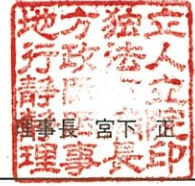 地方独立
行政法人
静岡市立
理事長印
理事長 宮下 正